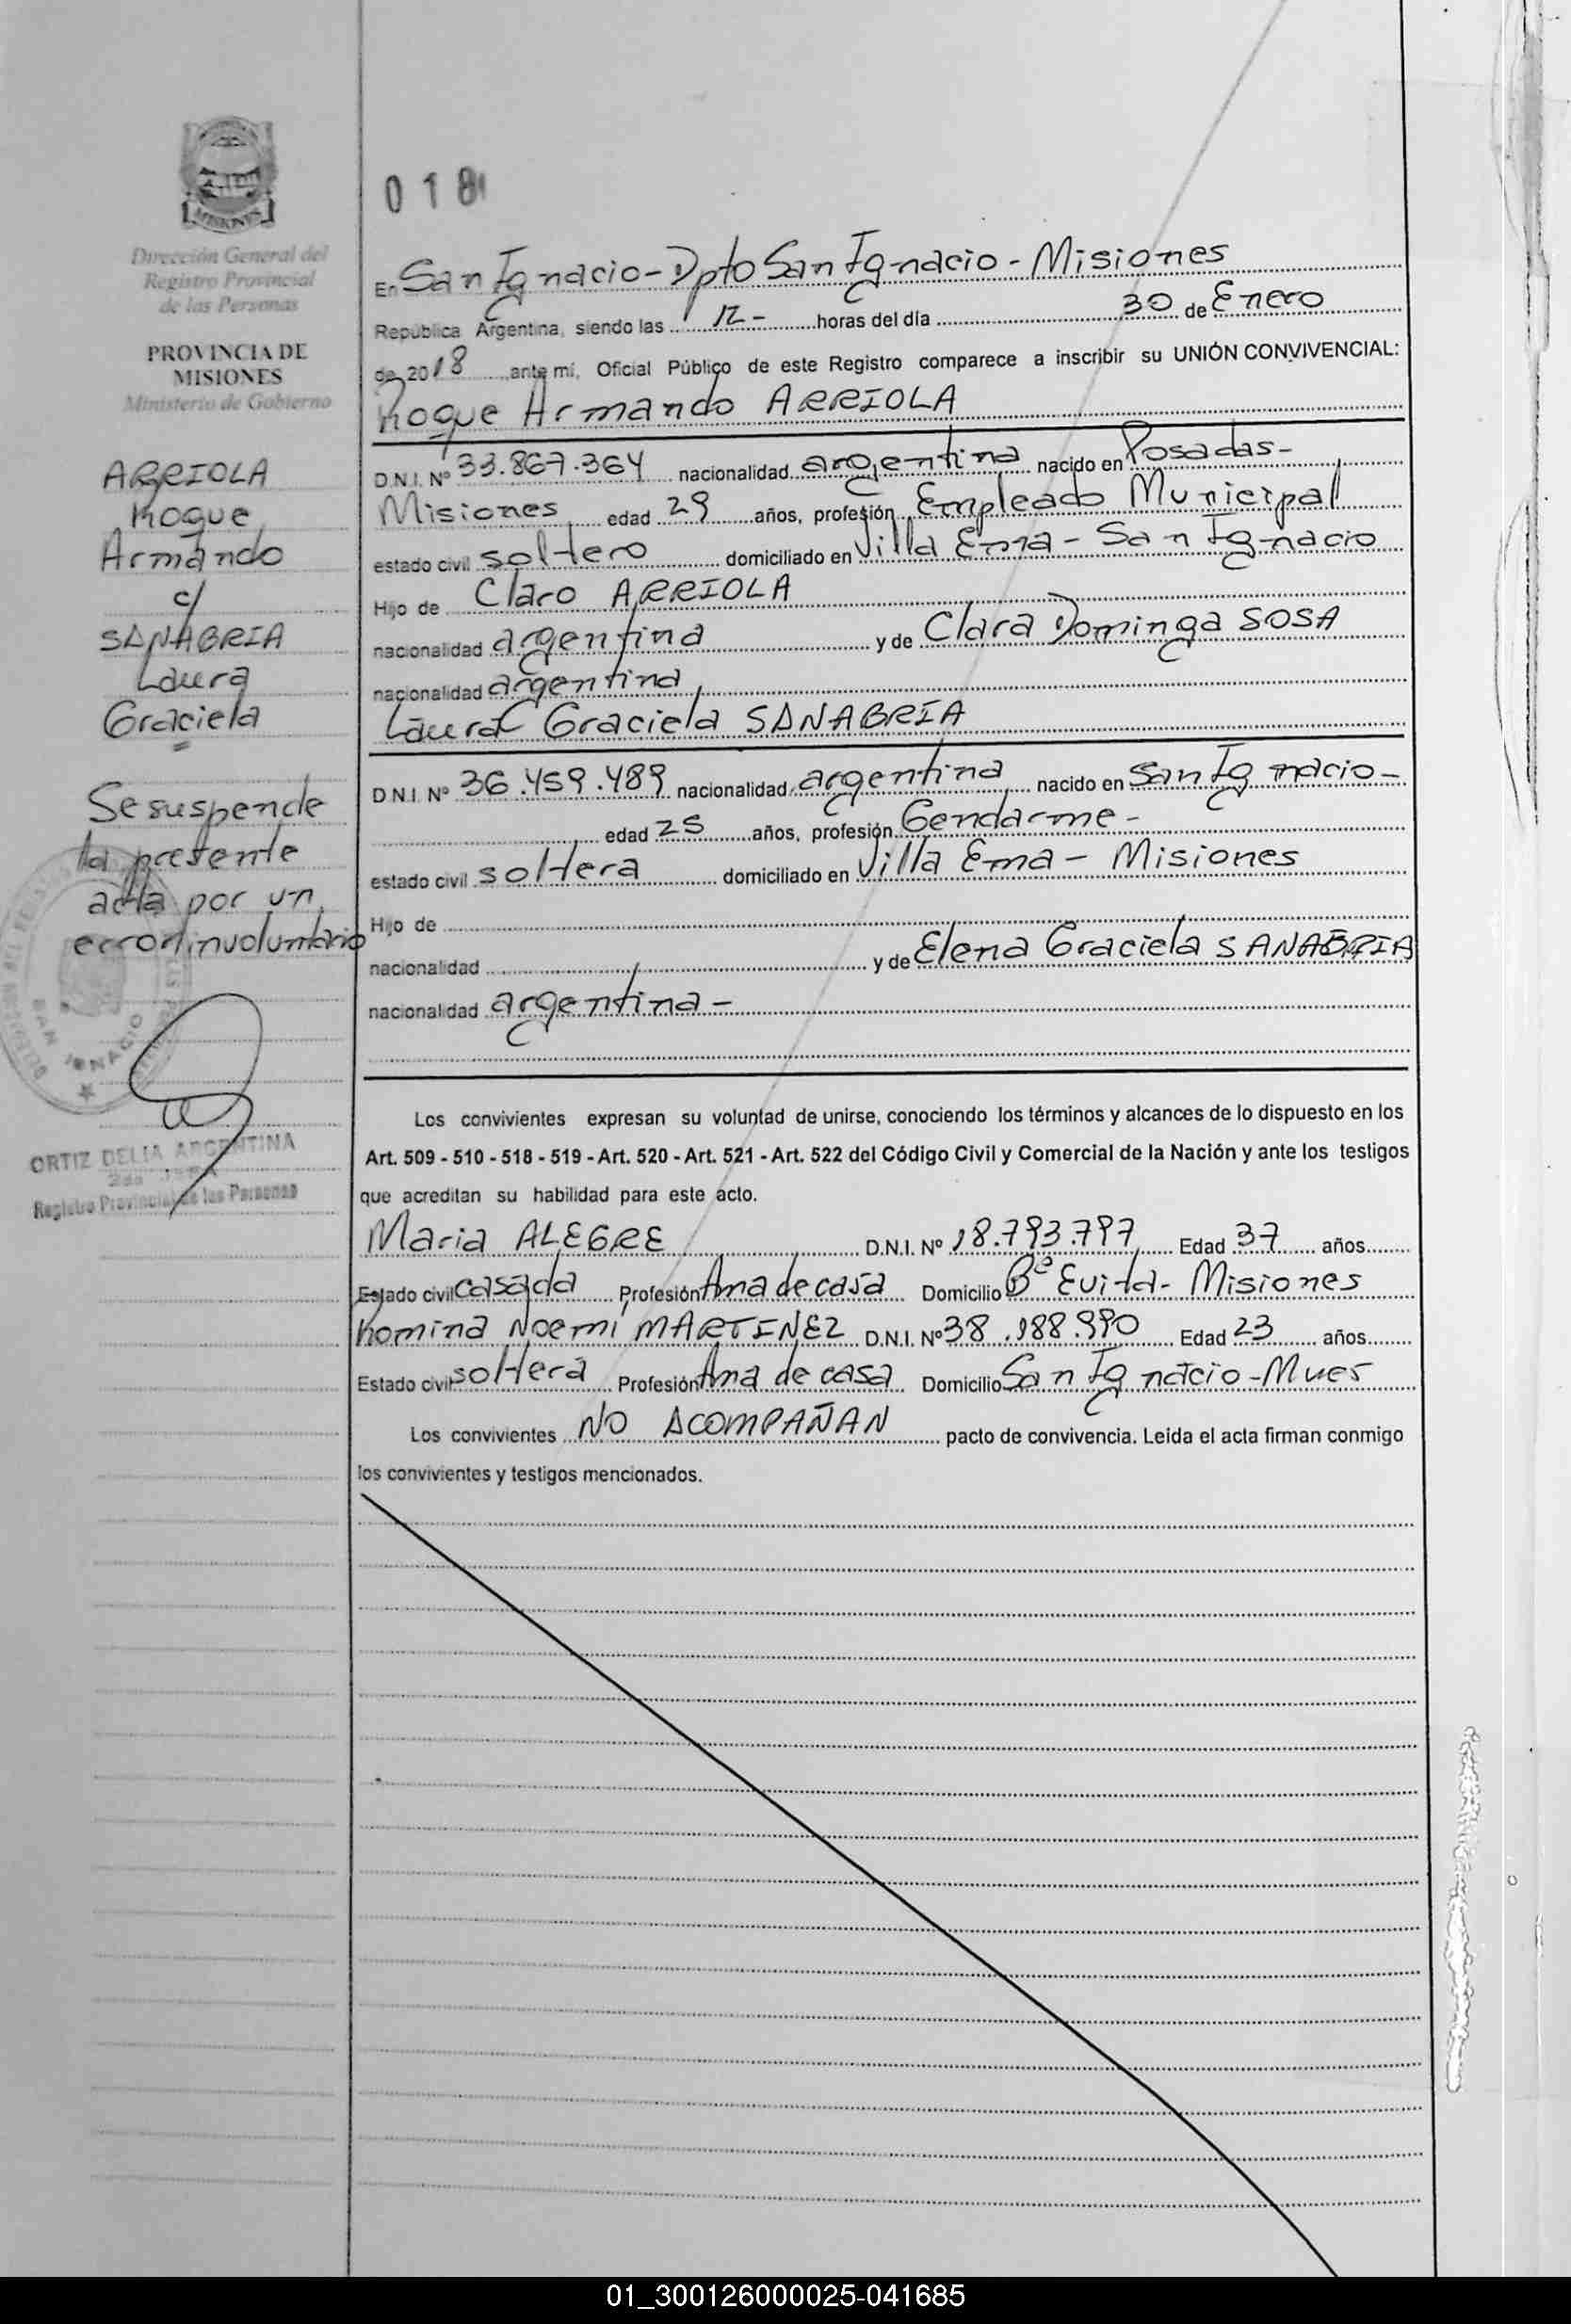 MISIONES
Dirección General del
Registro Provincial
de las Personas
PROVINCIA DE
MISIONES
Ministerio de Gobierno
ARRIOLA
Roque
Armando
c/
SANABRIA
Laura
Graciela
Se suspende
la presente
acta por un
error involuntario
SAN IGNACIO
ORTIZ DELIA ARGENTINA
Registro Provincial de las Personas
018
En San Ignacio - Dpto San Ignacio - Misiones
República Argentina, siendo las 12 - horas del día 30 de Enero
de 2018 ante mí, Oficial Público de este Registro comparece a inscribir su UNIÓN CONVIVENCIAL:
Roque Armando ARRIOLA
D.N.I. Nº 33.867.364 nacionalidad argentina nacido en Posadas -
Misiones edad 29 años, profesión Empleado Municipal
estado civil soltero domiciliado en Villa Ema - San Ignacio
Hijo de Claro ARRIOLA
nacionalidad argentina y de Clara Dominga SOSA
nacionalidad argentina
Laura Graciela SANABRIA
D.N.I. Nº 36.459.489 nacionalidad argentina nacido en San Ignacio -
edad 25 años, profesión Gendarme -
estado civil soltera domiciliado en Villa Ema - Misiones
Hijo de
nacionalidad y de Elena Graciela SANABRIA
nacionalidad argentina -
Los convivientes expresan su voluntad de unirse, conociendo los términos y alcances de lo dispuesto en los
Art. 509 - 510 - 518 - 519 - Art. 520 - Art. 521 - Art. 522 del Código Civil y Comercial de la Nación y ante los testigos
que acreditan su habilidad para este acto.
Maria ALEGRE D.N.I. Nº 18.793.797 Edad 37 años
Estado civil casada Profesión Ama de casa Domicilio Bº Evita - Misiones
Romina Noemí MARTINEZ D.N.I. Nº 38.188.990 Edad 23 años
Estado civil soltera Profesión Ama de casa Domicilio San Ignacio - Mnes
Los convivientes NO ACOMPAÑAN pacto de convivencia. Leida el acta firman conmigo
los convivientes y testigos mencionados.
01_300126000025-041685